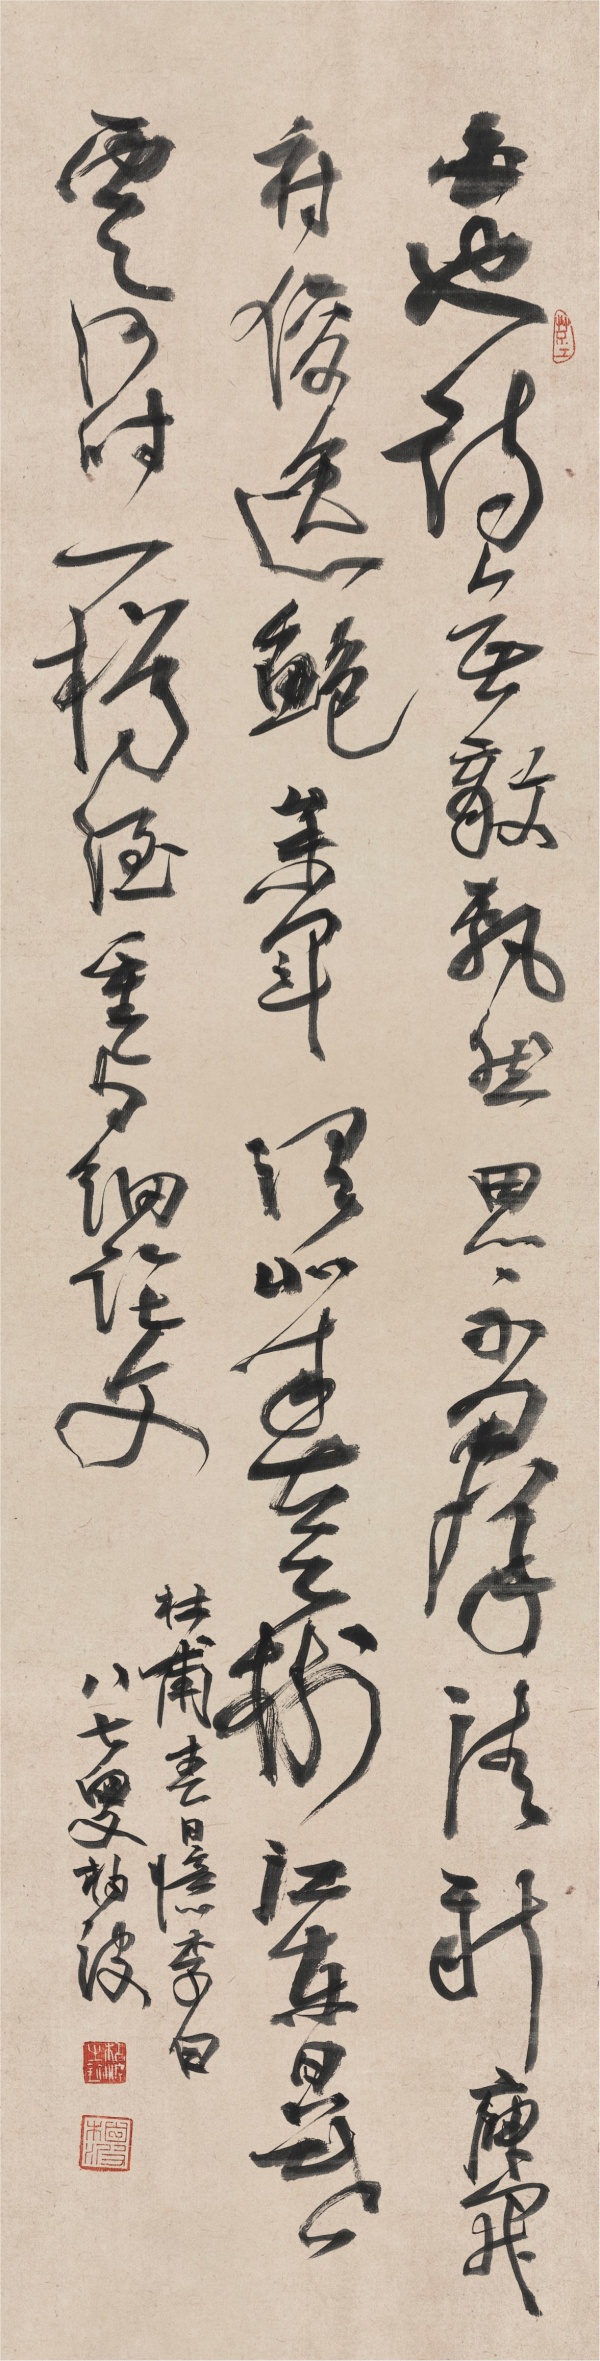 白也詩無敵飄然思不羣清新庾開
府俊逸鮑參軍渭北春天樹江東日暮
雲何時一樽酒重與細論文
杜甫春日憶李白
八七叟柏波